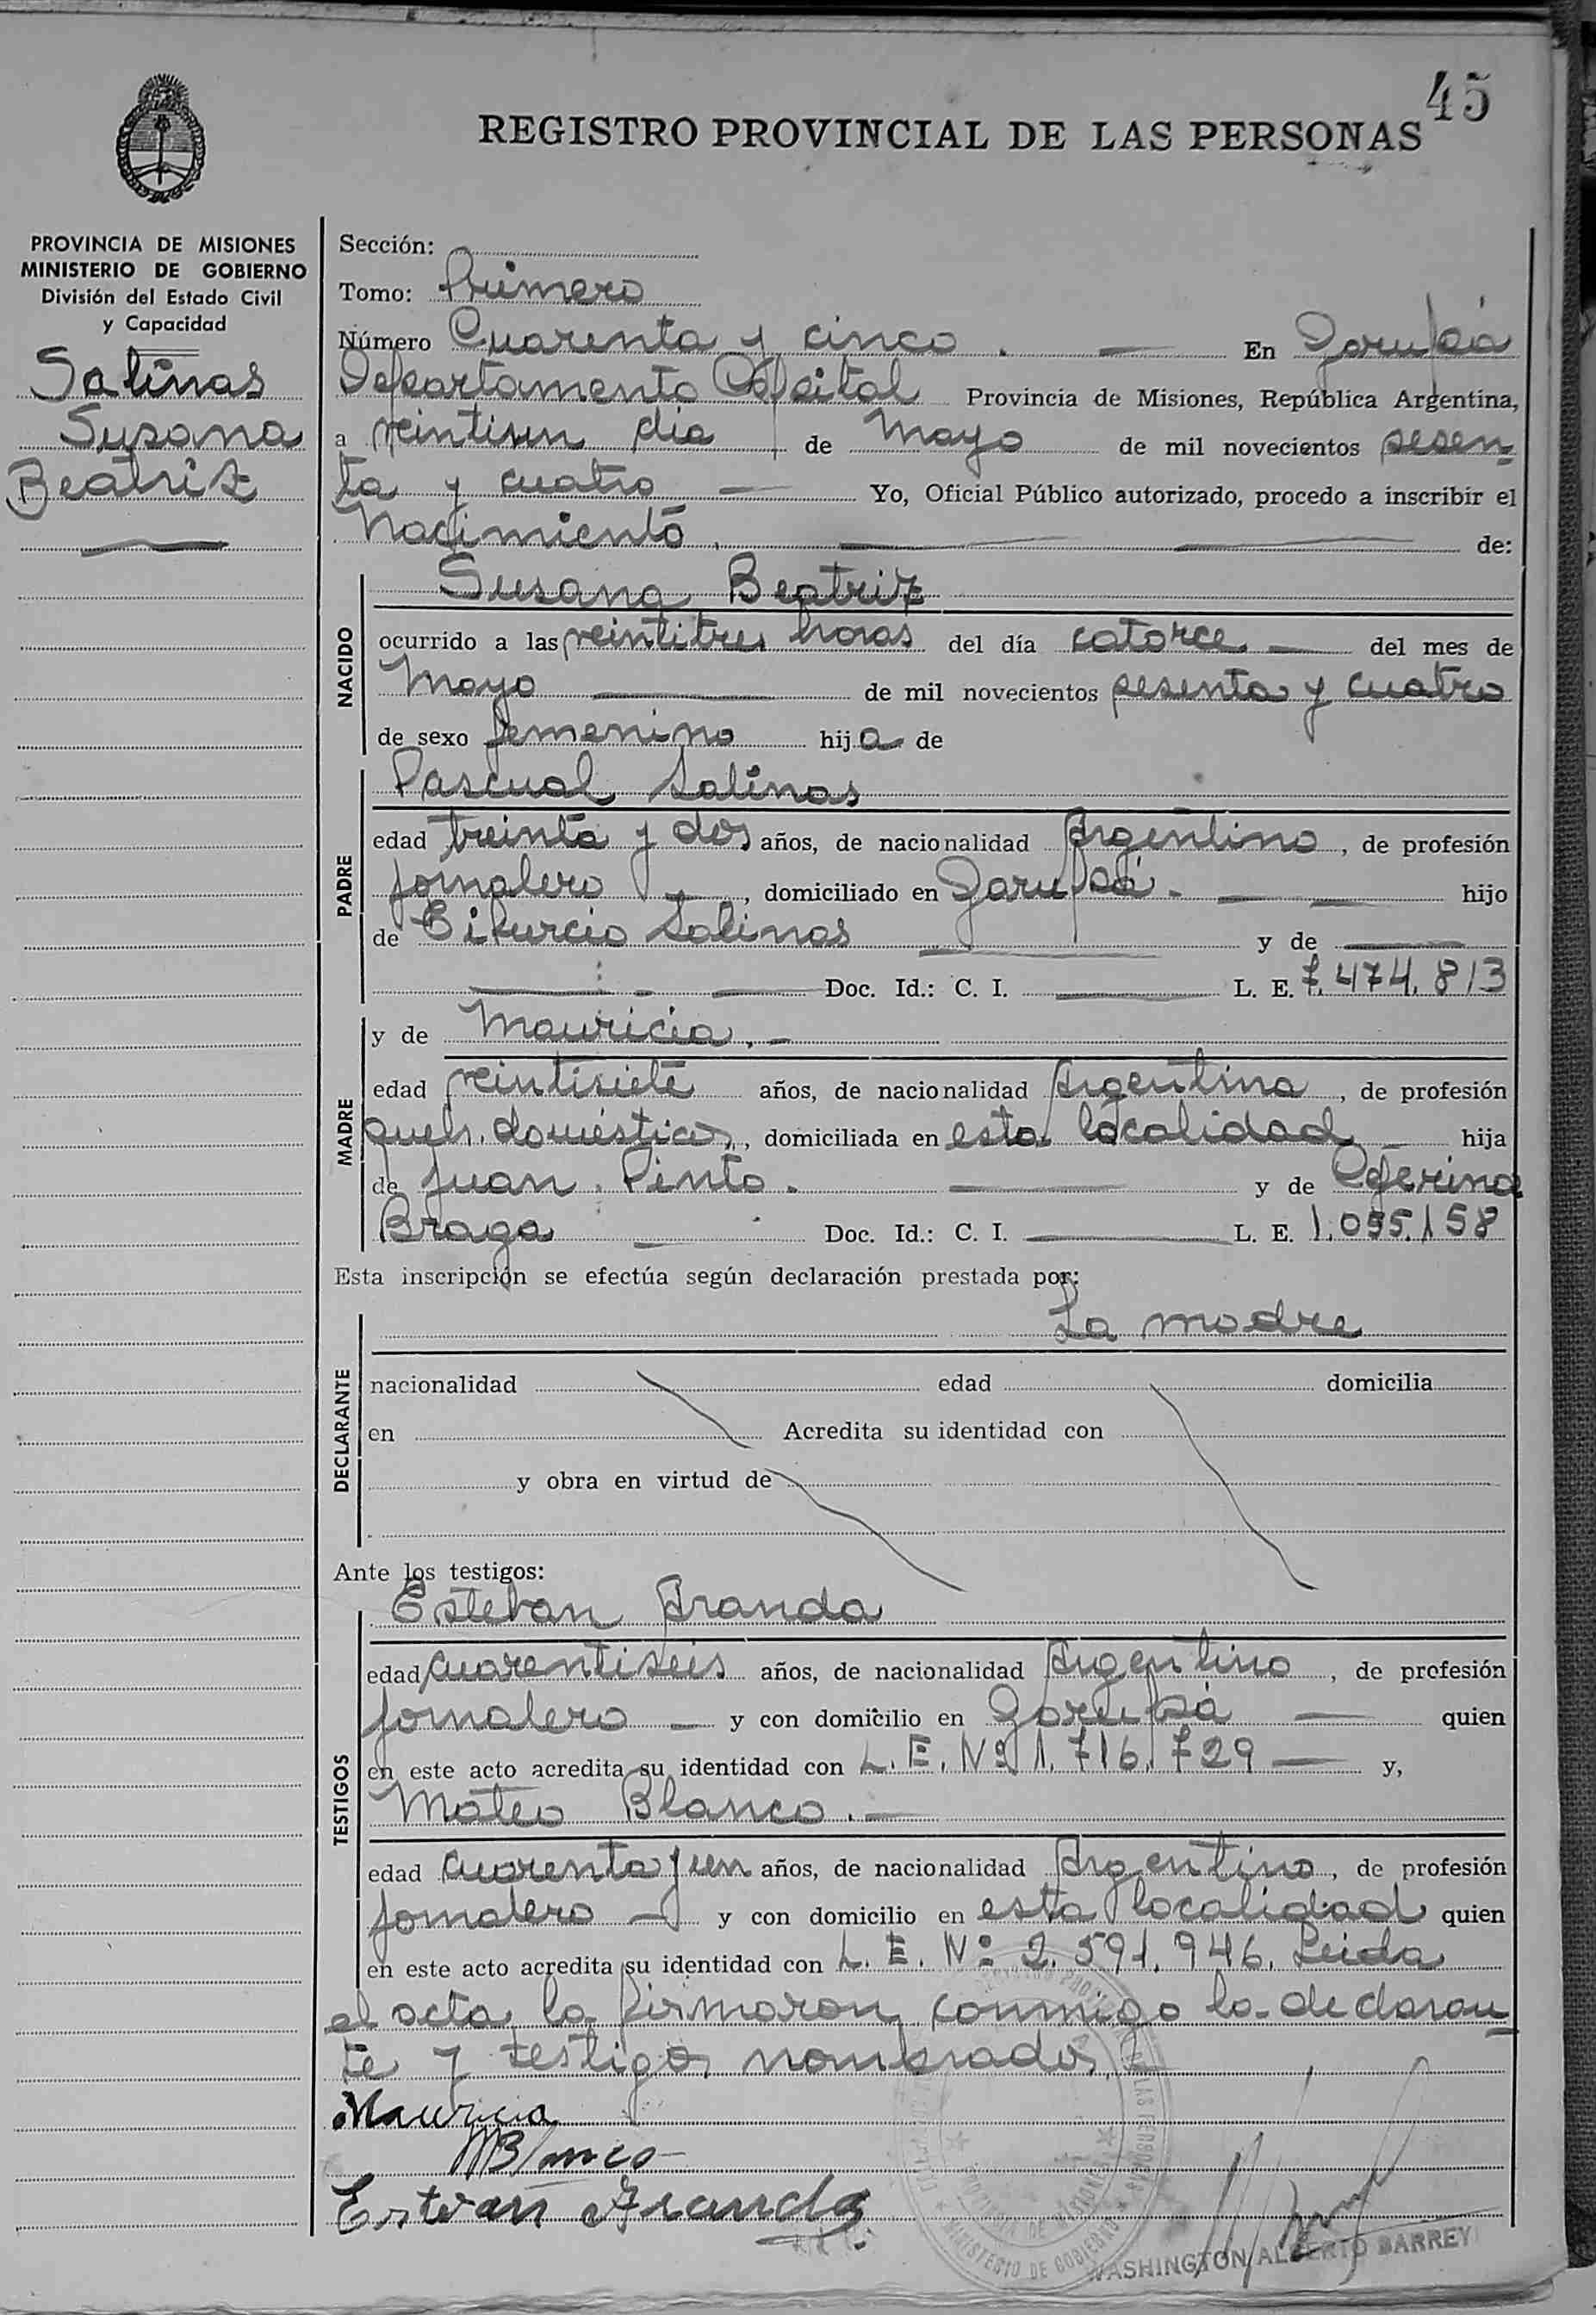 45
REGISTRO PROVINCIAL DE LAS PERSONAS
PROVINCIA DE MISIONES
MINISTERIO DE GOBIERNO
División del Estado Civil
y Capacidad
Salinas
Susana
Beatriz
Sección:
Tomo: Primero
Número Cuarenta y cinco . — En Garupá
Departamento Capital Provincia de Misiones, República Argentina,
a veintiun dia de Mayo de mil novecientos sesen-
ta y cuatro — Yo, Oficial Público autorizado, procedo a inscribir el
Nacimiento . — — de:
NACIDO
Susana Beatriz
ocurrido a las veintitres horas del día catorce — del mes de
Mayo — de mil novecientos sesenta y cuatro
de sexo femenino hija de
PADRE
Pascual Salinas
edad treinta y dos años, de nacionalidad Argentino, de profesión
jornalero —, domiciliado en Garupá. — — hijo
de Salinas — y de —
— - — Doc. Id.: C. I. — L. E. 7.474.813
MADRE
y de Mauricia. -
edad veintisiete años, de nacionalidad Argentina, de profesión
queh. domésticos, domiciliada en esta localidad — hija
de Juan Pinto. — y de Ceferina
Braga — Doc. Id.: C. I. — L. E. 1.055.158
Esta inscripción se efectúa según declaración prestada por:
DECLARANTE
La madre
nacionalidad edad domicilia
en Acredita su identidad con
y obra en virtud de
Ante los testigos:
TESTIGOS
Esteban Aranda
edad cuarentiseis años, de nacionalidad Argentino, de profesión
jornalero — y con domicilio en Garupá — quien
en este acto acredita su identidad con L. E. Nº 1.716.729 — y,
Mateo Blanco. —
edad cuarenta y un años, de nacionalidad Argentino, de profesión
jornalero — y con domicilio en esta localidad quien
en este acto acredita su identidad con L. E. Nº 2.591.946. Leida
el acta la firmaron conmigo la declaran-
te y testigos nombrados. —
Mauricia
MBlanco
Estevan Aranda
MINISTERIO DE GOBIERNO
PROVINCIA DE MISIONES
WASHINGTON ALBERTO BARREY